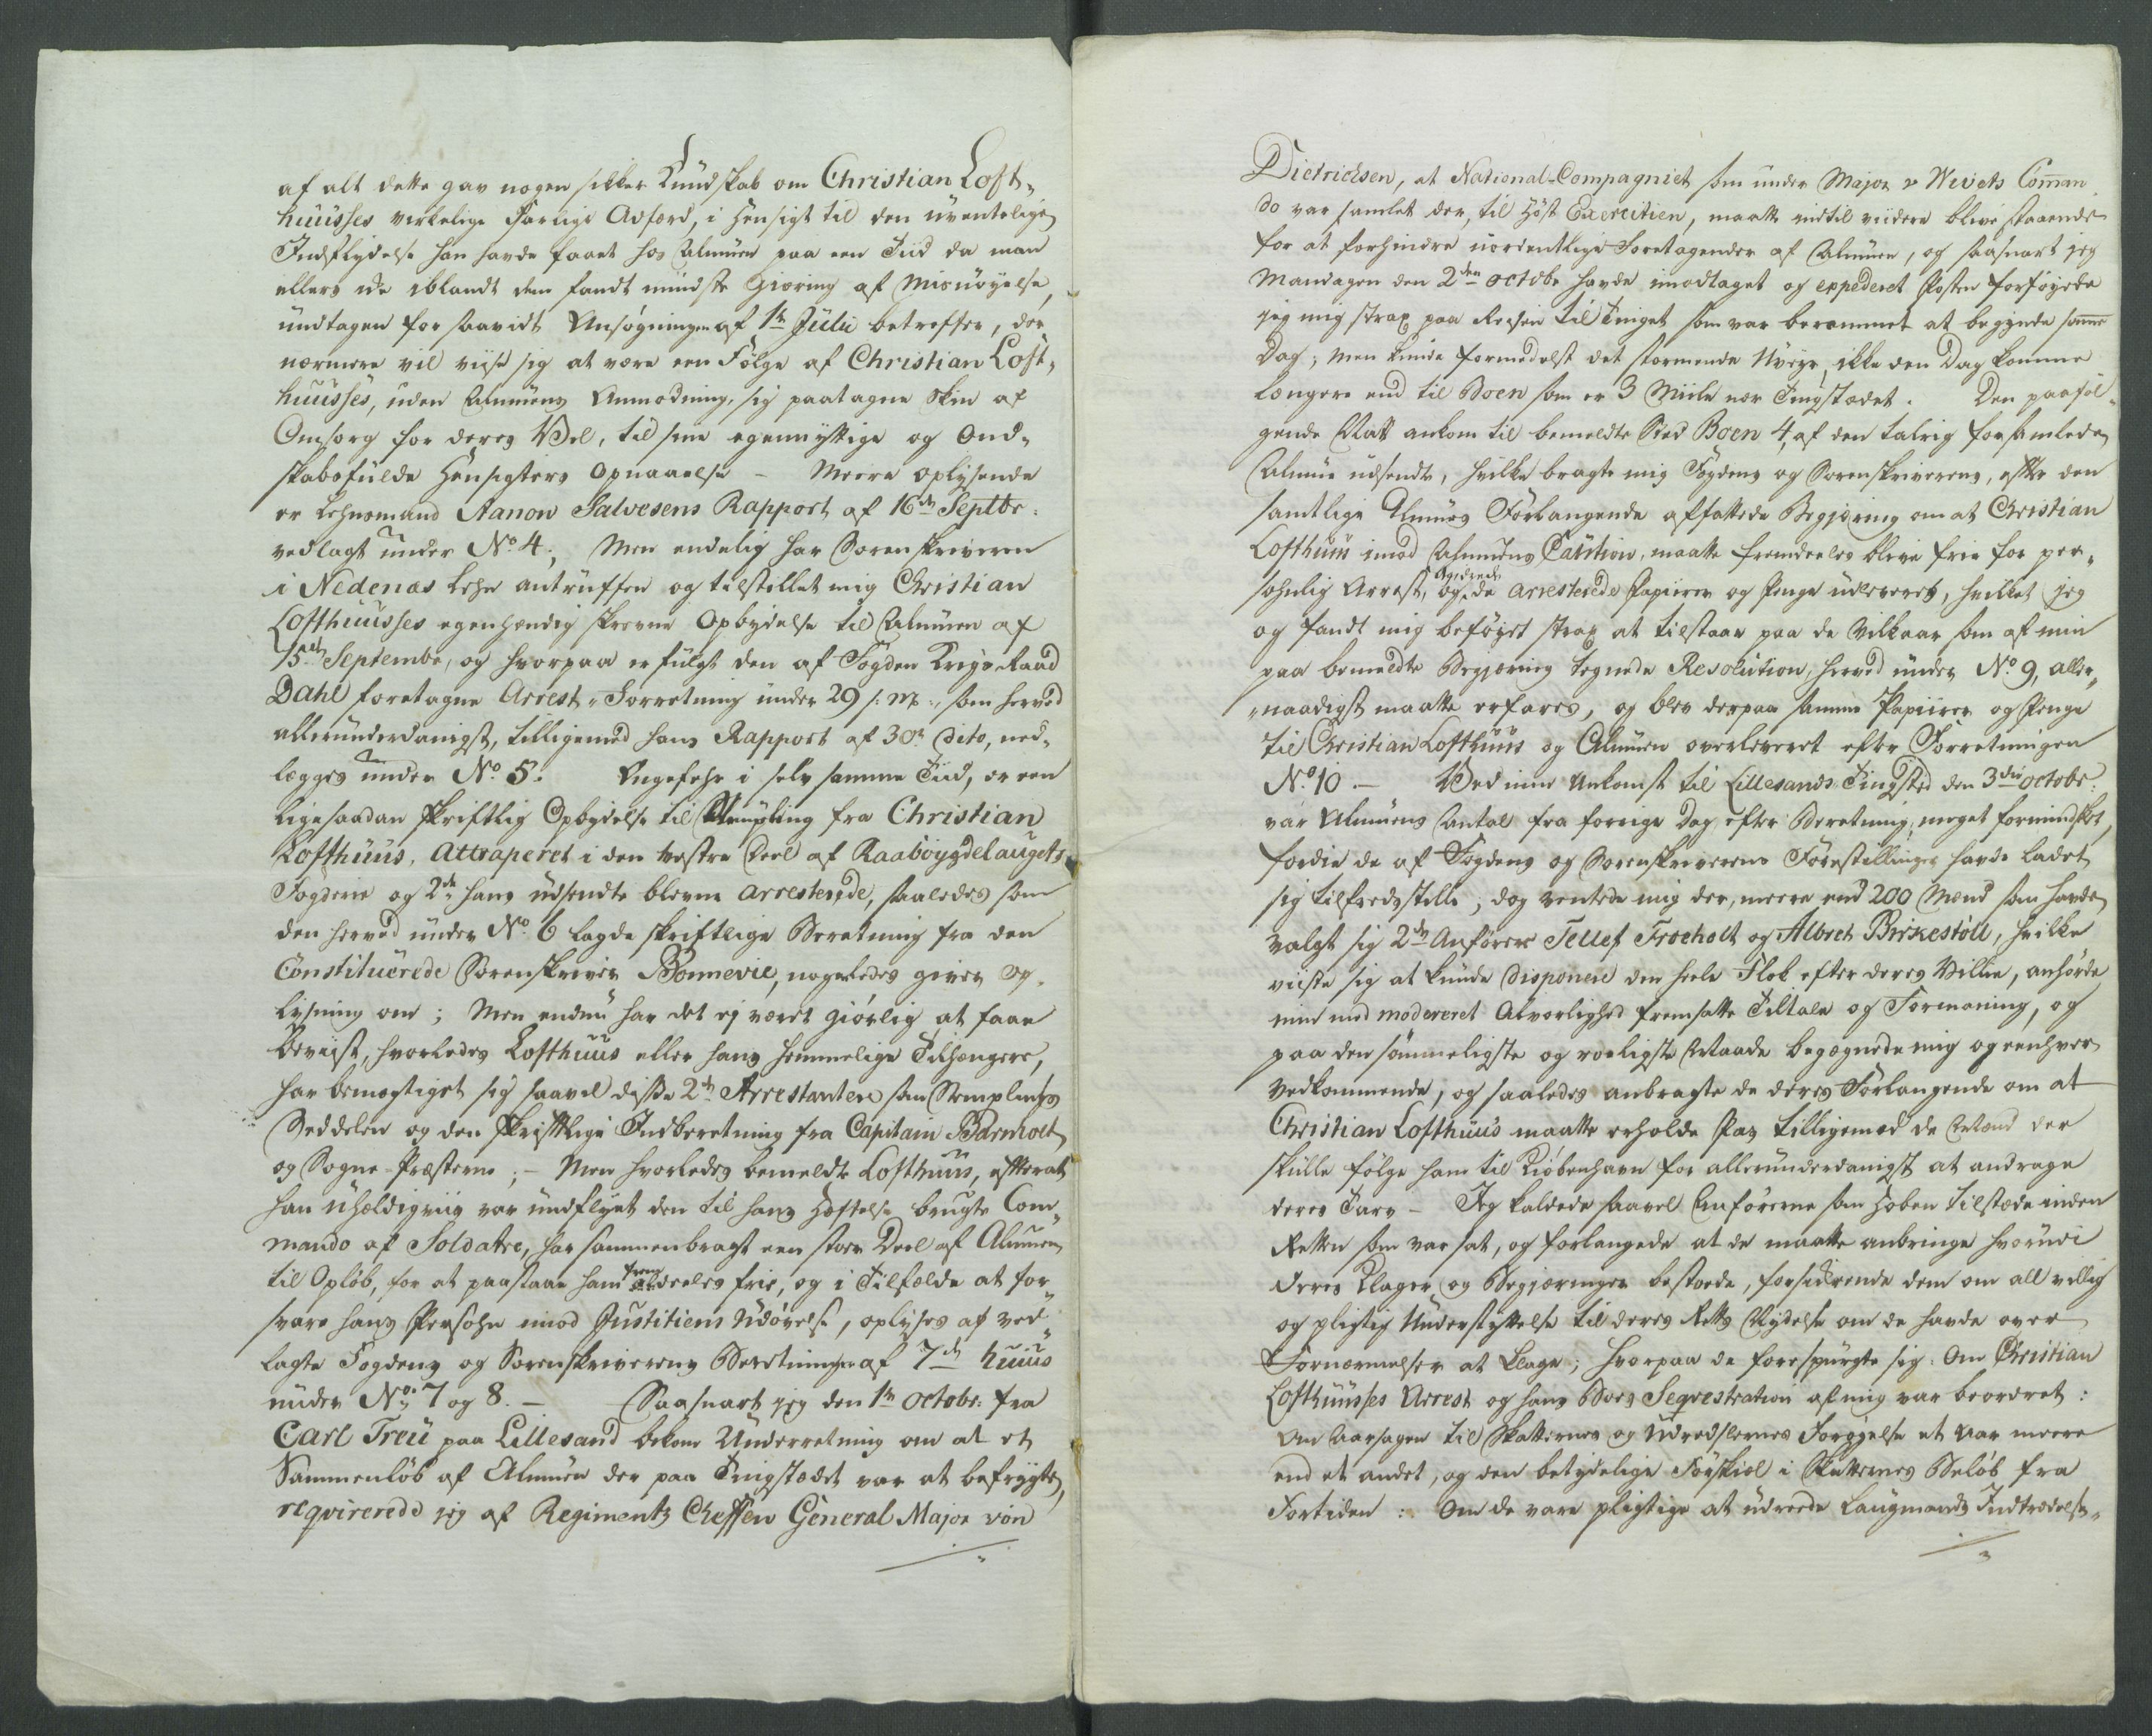 af alt dette gav nogen sikker Kundskab om Christian Loft„
huuses virkelige farlige Adfærd, i Hensigt til den uventelige
Indflydelse han havde faaet hos Almuen paa een Tiid da man
ellers ide iblandt dem fandt mindste Giæring af Misnøyelse,
undtagen for saavidt Ansøgningen af 1te Julii betreffer, der
nærmere vil viise sig at være een Følge af Christian Loft„
huuses, uden Almuens Anmodning, sig paatagne Skin af
Omsorg for deres Vel, til sine egennyttige og Ond„
skabsfulde Hensigters Opnaaelse – Meere oplysende
er Lehnsmand Aanon Salvesens Rapport af 16de Septbr:
vedlagt under No 4; Men endelig har Sorenskriveren
i Nedenæs Lehn antruffen og tilstillet mig Christian
Lofthuuses egenhændig skrevne Opbydelse til Almuen af
15de Septembr, og hvorpaa er fulgt den af Fogden Krigs-Raad
Dahl foretagne Arrest-Forretning under 29 s: M:, som herved
allerunderdanigst, tilligemed hans Rapport af 30te dito, ned„
lægges under No 5. Ungefehr i selv samme Tiid, er een
ligesaadan skriftlig Opbydelse til Stempling fra Christian
Lofthuus, Attraperet i den vestre Deel af Raabøygdelaugets
Fogderie og 2de hans udsendte blevne arresterede, saaledes som
den herved under No 6 lagde skriftlige Beretning fra den
Constituerede Sorenskriver Bonnevie, nogerledes giver Op„
lysning om; Men endnu har det ej været giørlig at faae
beviist, hvorledes Lofthuus eller hans hemmelige Tilhængere,
har bemægtiget sig saavel disse 2de Arrestantere som Stemplings
Seddelen og den skriftlige Indberetning fra Capitain Barnholt
og Sogne-Præsterne; – Men hvorledes bemeldte Lofthuus, efterat
han uheldigviis var undflyet den til hans Hæftelse brugte Com„
mando af Soldatre, har sammenbragt een stor Deel af Almuen
til Opløb, for at paastaae ham frem
aldeeles frie, og i Tilfælde at for„
svare hans Persohn imod Justitiens Udøvelse, oplyses af ved„
lagte Fogdens og Sorenskriverens Beretninger af 7de huius
under No 7 og 8. – Saasnart jeg den 1te Octobr: fra
Carl Treu paa Lillesand bekom Underretning om at et
Sammenløb af Almuen der paa Tingstædet var at befrygte,
reqvirerede jeg af Regiments Cheffen General Major von
Dietrichsen, at National-Compagniet som under Major v Wivets Comman„
do var samlet der, til Høst Exercitien, maatte indtil viidere blive staaende
for at forhindre uordentlige Foretagender af Almuen, og saasnart jeg
Mandagen den 2den Octobr havde imodtaget og expederet Posten forføyede
jeg mig strax paa Reisen til Tinget som var berammet at begynde samme
Dag; Men kunde formedelst det stormende Uveyr, ikke den Dag komme
længere end til Boen som er 3 Miile nær Tingstædet. Den paaføl„
gende Natt ankom til bemeldte Sted Boen 4 af den talrig forsamlede
Almue udsendte, hvilke bragte mig Fogdens og Sorenskriverens, efter den
samtlige Almues Forlangende affattede Begjæring om at Christian
Lofthuus imod Almuens Caution, maatte fremdeeles blive frie for per„
sohnlig Arrest, og de arresterede Papiirer og Penge udleveret, hvilket jeg
og fandt mig beføyet strax at tilstaae paa de Vilkaar som af min
paa bemeldte Begjæring tegnede Resolution, herved under No 9, aller„
„naadigst maatte erfares, og blev derpaa samme Papiirer og Penge
til Christian Lofthuus og Almuen overleveret efter Forretningen
No 10 – Ved min Ankomst til Lillesands Tingsted den 3die Octobr:
var Almuens Antal fra forrige Dag, efter Beretning, meget formindsket,
fordie de af Fogdens og Sorenskriverens Forestillinger havde ladet
sig tilfredsstille; dog ventede mig der, meere end 200 Mænd som havde
valgt sig 2de Anførere Tellef Troeholt og Albret Birkestøll, hvilke
viiste sig at kunde disponere den heele Flok efter deres Villie, anhørde
min med modereret Alvorlighed fremsatte Tiltale og Formaning, og
paa den sømmeligste og roeligste Maade begegnede mig og eenhver
Vedkommende, og saaledes anbragte de deres Forlangende om at
Christian Lofthuus maatte erholde Pas tilligemed de Mænd der
skulle følge ham til Kiøbenhavn for allerunderdanigst at andrage
deres Tarv – Jeg kaldede saavel Anførerne som Hoben tilstæde inden
Retten som var sat, og forlangede at de maatte anbringe hvorudi
deres Klager og Begjæringer bestoede, forsikrende dem om all vellig
og pligtig Understyttelse til deres Retts Nydelse om de havde over
Fornærmelser at klage; hvorpaa de forespurgte sig: Om Christian
Lofthuuses Arrest og hans Boes Seqvestration af mig var beordret:
Om Aarsagen til Skatternes og Udredslernes Forøgelse et Aar meere
end et andet, og den betydelige Forskiel i Skatternes Beløb fra
Fortiden: Om de vare pligtige at udrede Laugmands Indtrædelse„